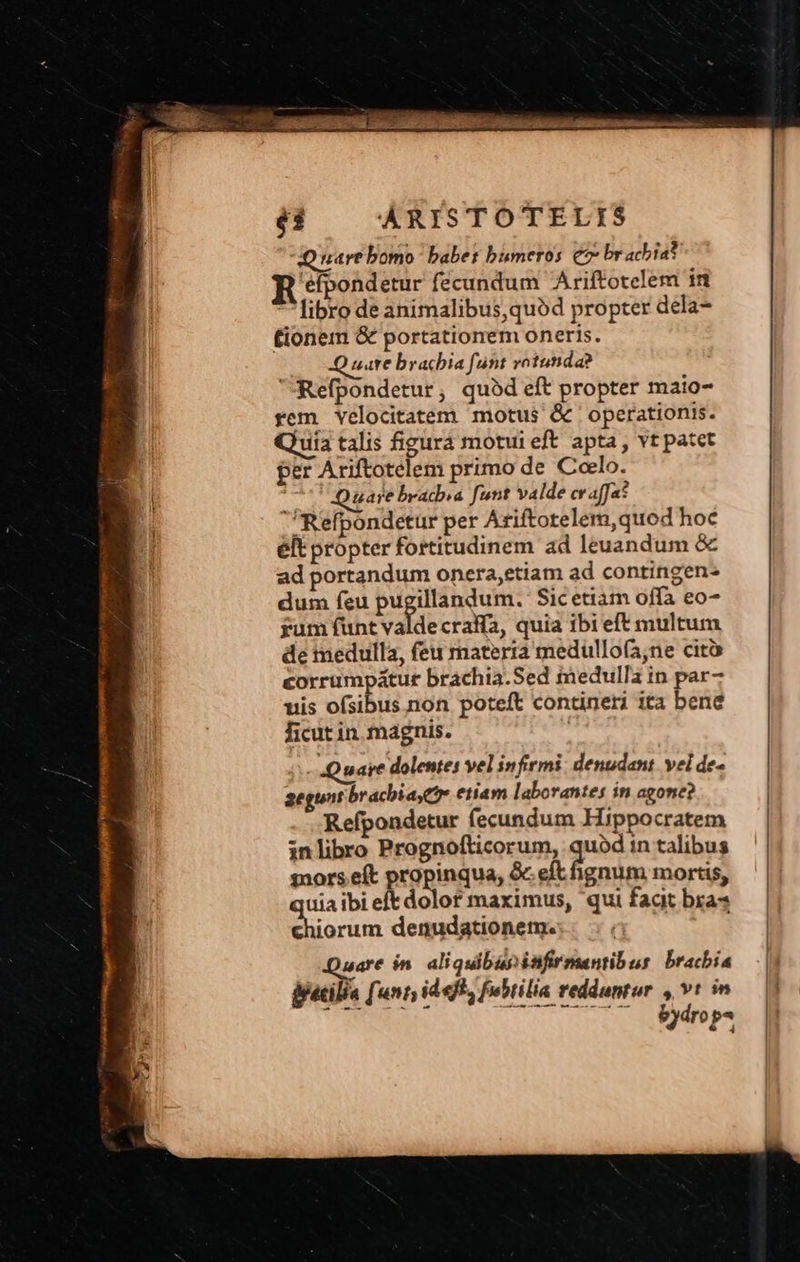 ARISTOTELIS
Quare homo habet humeros & brachia?
Respondetur secundum Aristotelem in
libro de animalibus, quòd propter dela-
tionem & portationem oneris.
Quare brachia sunt rotunda?
Respondetur, quòd est propter maio-
rem velocitatem motus & operationis.
Quia talis figura motui est apta, vt patet
per Aristotelem primo de Cœlo.
Quare brachia sunt valde crassa?
Respondetur per Aristotelem, quod hoc
est propter fortitudinem ad leuandum &
ad portandum onera, etiam ad contingen-
dum seu pugillandum. Sic etiam ossa eo-
rum sunt valde crassa, quia ibi est multum
de medulla, seu materia medullosa, ne citò
corrumpātur brachia. Sed medulla in par-
uis ossibus non potest contineri ita bene
sicut in magnis.
Quare dolentes vel infirmi denudant vel de-
tegunt brachia, & etiam laborantes in agone?
Respondetur secundum Hippocratem
in libro Prognosticorum, quòd in talibus
mors est propinqua, & est signum mortis,
quia ibi est dolor maximus, qui facit bra-
chiorum denudationem.
Quare in aliquibus infirmantibus brachia
gracilia sunt, id est, subtilia redduntur, vt in
hydrop-